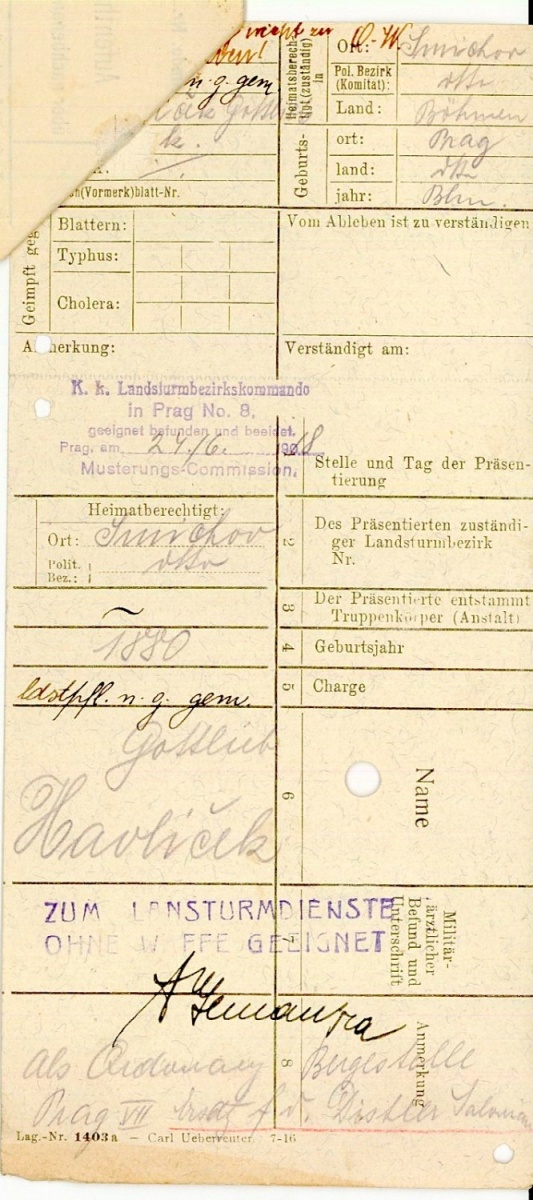 nicht zu
O.-W.
n. g. gem.
Heimatsberech-
tigt (zuständig)
in
Ort: Smichov
Pol. Bezirk
(Komitat): dtto
Land: Böhmen
Geburts-
ort: Prag
land: dtto
jahr: Bhm.
(Vormerk)blatt-Nr.
Geimpft geg
Blattern:
Typhus:
Cholera:
Vom Ableben ist zu verständigen
Anmerkung:
Verständigt am:
K. k. Landsturmbezirkskommando
in Prag No. 8,
geeignet befunden und beeidet.
Prag, am 24/6. 1918
Musterungs-Commission.
1 Stelle und Tag der Präsen-
tierung
Heimatberechtigt:
Ort: Smichov
Polit. Bez.: dtto
2 Des Präsentierten zuständi-
ger Landsturmbezirk
Nr.
3 Der Präsentierte entstammt
Truppenkörper (Anstalt)
1880
4 Geburtsjahr
ldstpfl. n. g. gem.
5 Charge
Gottlieb
Havlíček
6 Name
ZUM LANSTURMDIENSTE
OHNE WAFFE GEEIGNET
7
Militär-
ärztlicher
Befund und
Unterschrift
8 Anmerkung
als
Prag VII Ersatz f. d. Distler Salomon
Lag.-Nr. 1403a – Carl Ueberreuter. 7-16